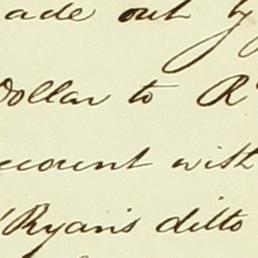 ade out by
Dollar to R
ccount with
Ryan's ditto